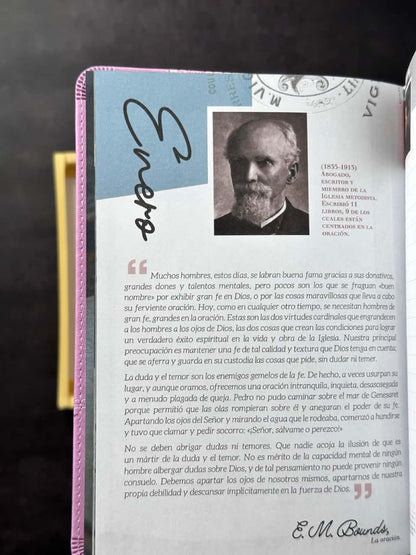 Enero
(1835-1913)
Abogado,
escritor y
miembro de la
Iglesia metodista.
Escribió 11
libros, 9 de los
cuales están
centrados en la
oración.
“ Muchos hombres, estos días, se labran buena fama gracias a sus donativos,
grandes dones y talentos mentales, pero pocos son los que se fraguan «buen
nombre» por exhibir gran fe en Dios, o por las cosas maravillosas que lleva a cabo
su ferviente oración. Hoy, como en cualquier otro tiempo, se necesitan hombres de
gran fe, grandes en la oración. Estas son las dos virtudes cardinales que engrandecen
a los hombres a los ojos de Dios, las dos cosas que crean las condiciones para lograr
un verdadero éxito espiritual en la vida y obra de la Iglesia. Nuestra principal
preocupación es mantener una fe de tal calidad y textura que Dios tenga en cuenta;
que se aferra y guarda en su custodia las cosas que pide, sin dudar ni temer.
La duda y el temor son los enemigos gemelos de la fe. De hecho, a veces usurpan su
lugar, y aunque oramos, ofrecemos una oración intranquila, inquieta, desasosegada
y a menudo plagada de queja. Pedro no pudo caminar sobre el mar de Genesaret
porque permitió que las olas rompieran sobre él y anegaran el poder de su fe.
Apartando los ojos del Señor y mirando el agua que le rodeaba, comenzó a hundirse
y tuvo que clamar y pedir socorro: «¡Señor, sálvame o perezco!»
No se deben abrigar dudas ni temores. Que nadie acoja la ilusión de que es
un mártir de la duda y el temor. No es mérito de la capacidad mental de ningún
hombre albergar dudas sobre Dios, y de tal pensamiento no puede provenir ningún
consuelo. Debemos apartar los ojos de nosotros mismos, apartarnos de nuestra
propia debilidad y descansar implícitamente en la fuerza de Dios. ”
E. M. Bounds,
La oración.